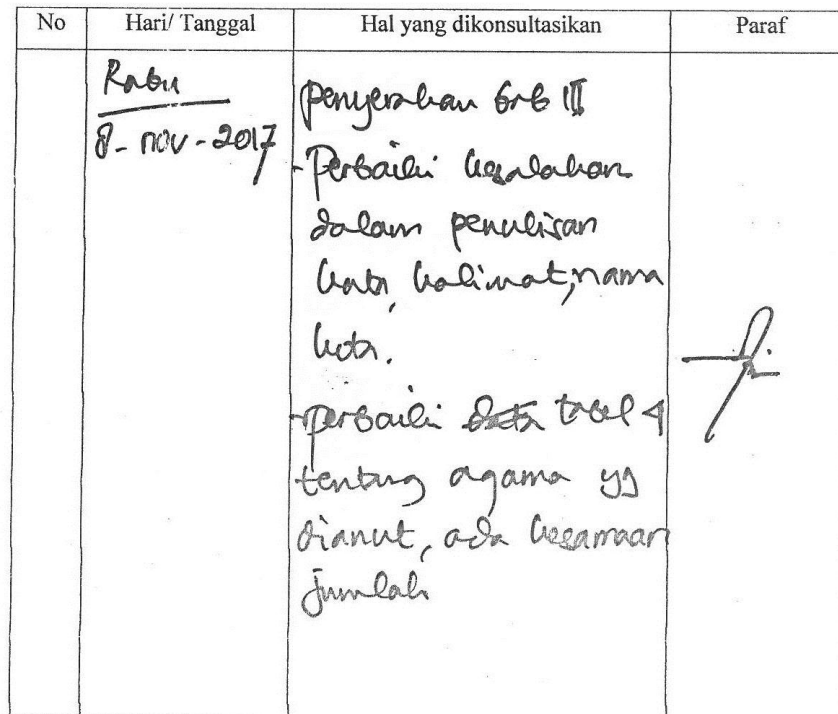 No Hari/ Tanggal Hal yang dikonsultasikan Paraf
Rabu
8 - nov - 2017
penyerahan bab III
- Perbaiki kesalahan
dalam penulisan
kata, kalimat, nama
kota.
- perbaiki data tabel 4
tentang agama yg
dianut, ada kesamaan
jumlah